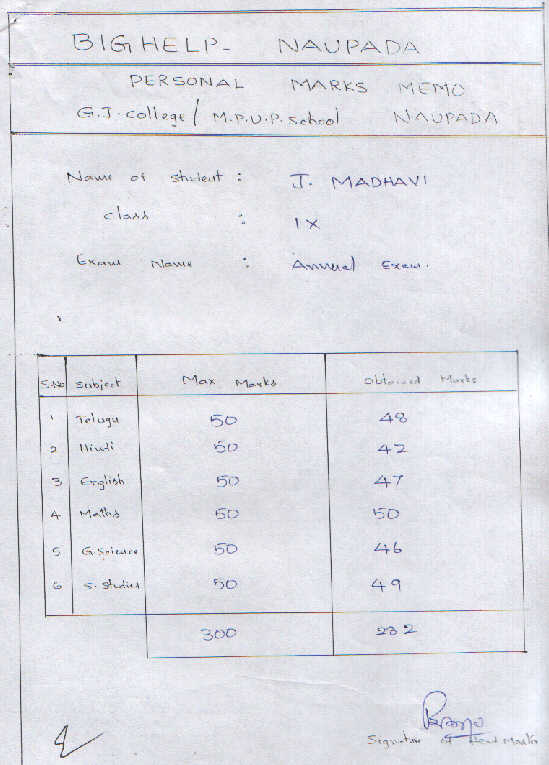 BIGHELP- NAUPADA
PERSONAL MARKS MEMO
G.J. college / M.P.U.P. school NAUPADA
Name of student : J. MADHAVI
class : IX
Exam Name : Annual Exam.
S.No Subject Max Marks Obtained Marks
1 Telugu 50 48
2 Hindi 50 42
3 English 50 47
4 Maths 50 50
5 G.Science 50 46
6 S. Studies 50 49
300 232
Signature of Head Master